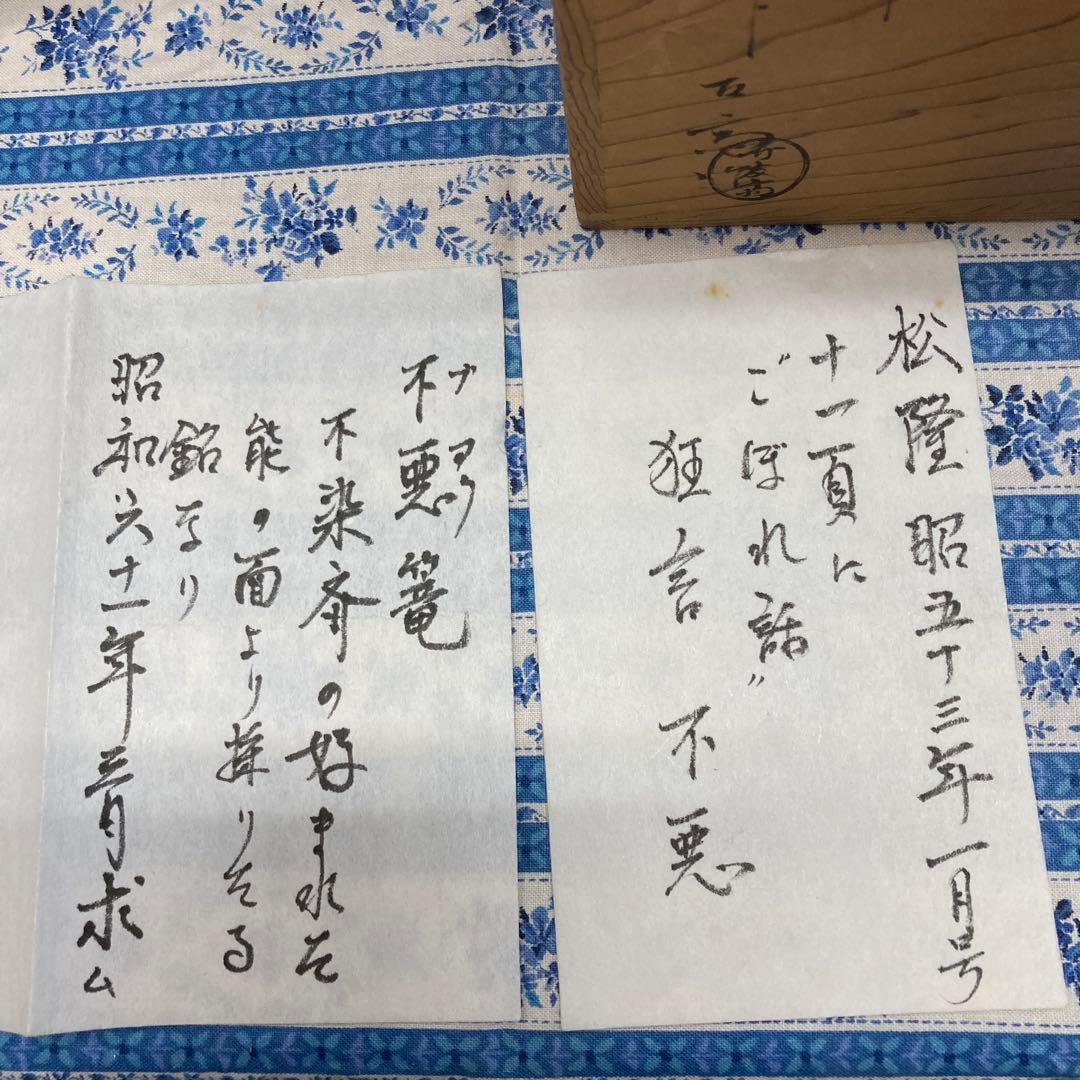 松隆 昭五十三年一月号
十一頁に
"こぼれ話"
狂言 不悪
ブアク
不悪篭
不染斎の好まれた
能の面より採りたる
銘なり
昭和六十一年三月求ム